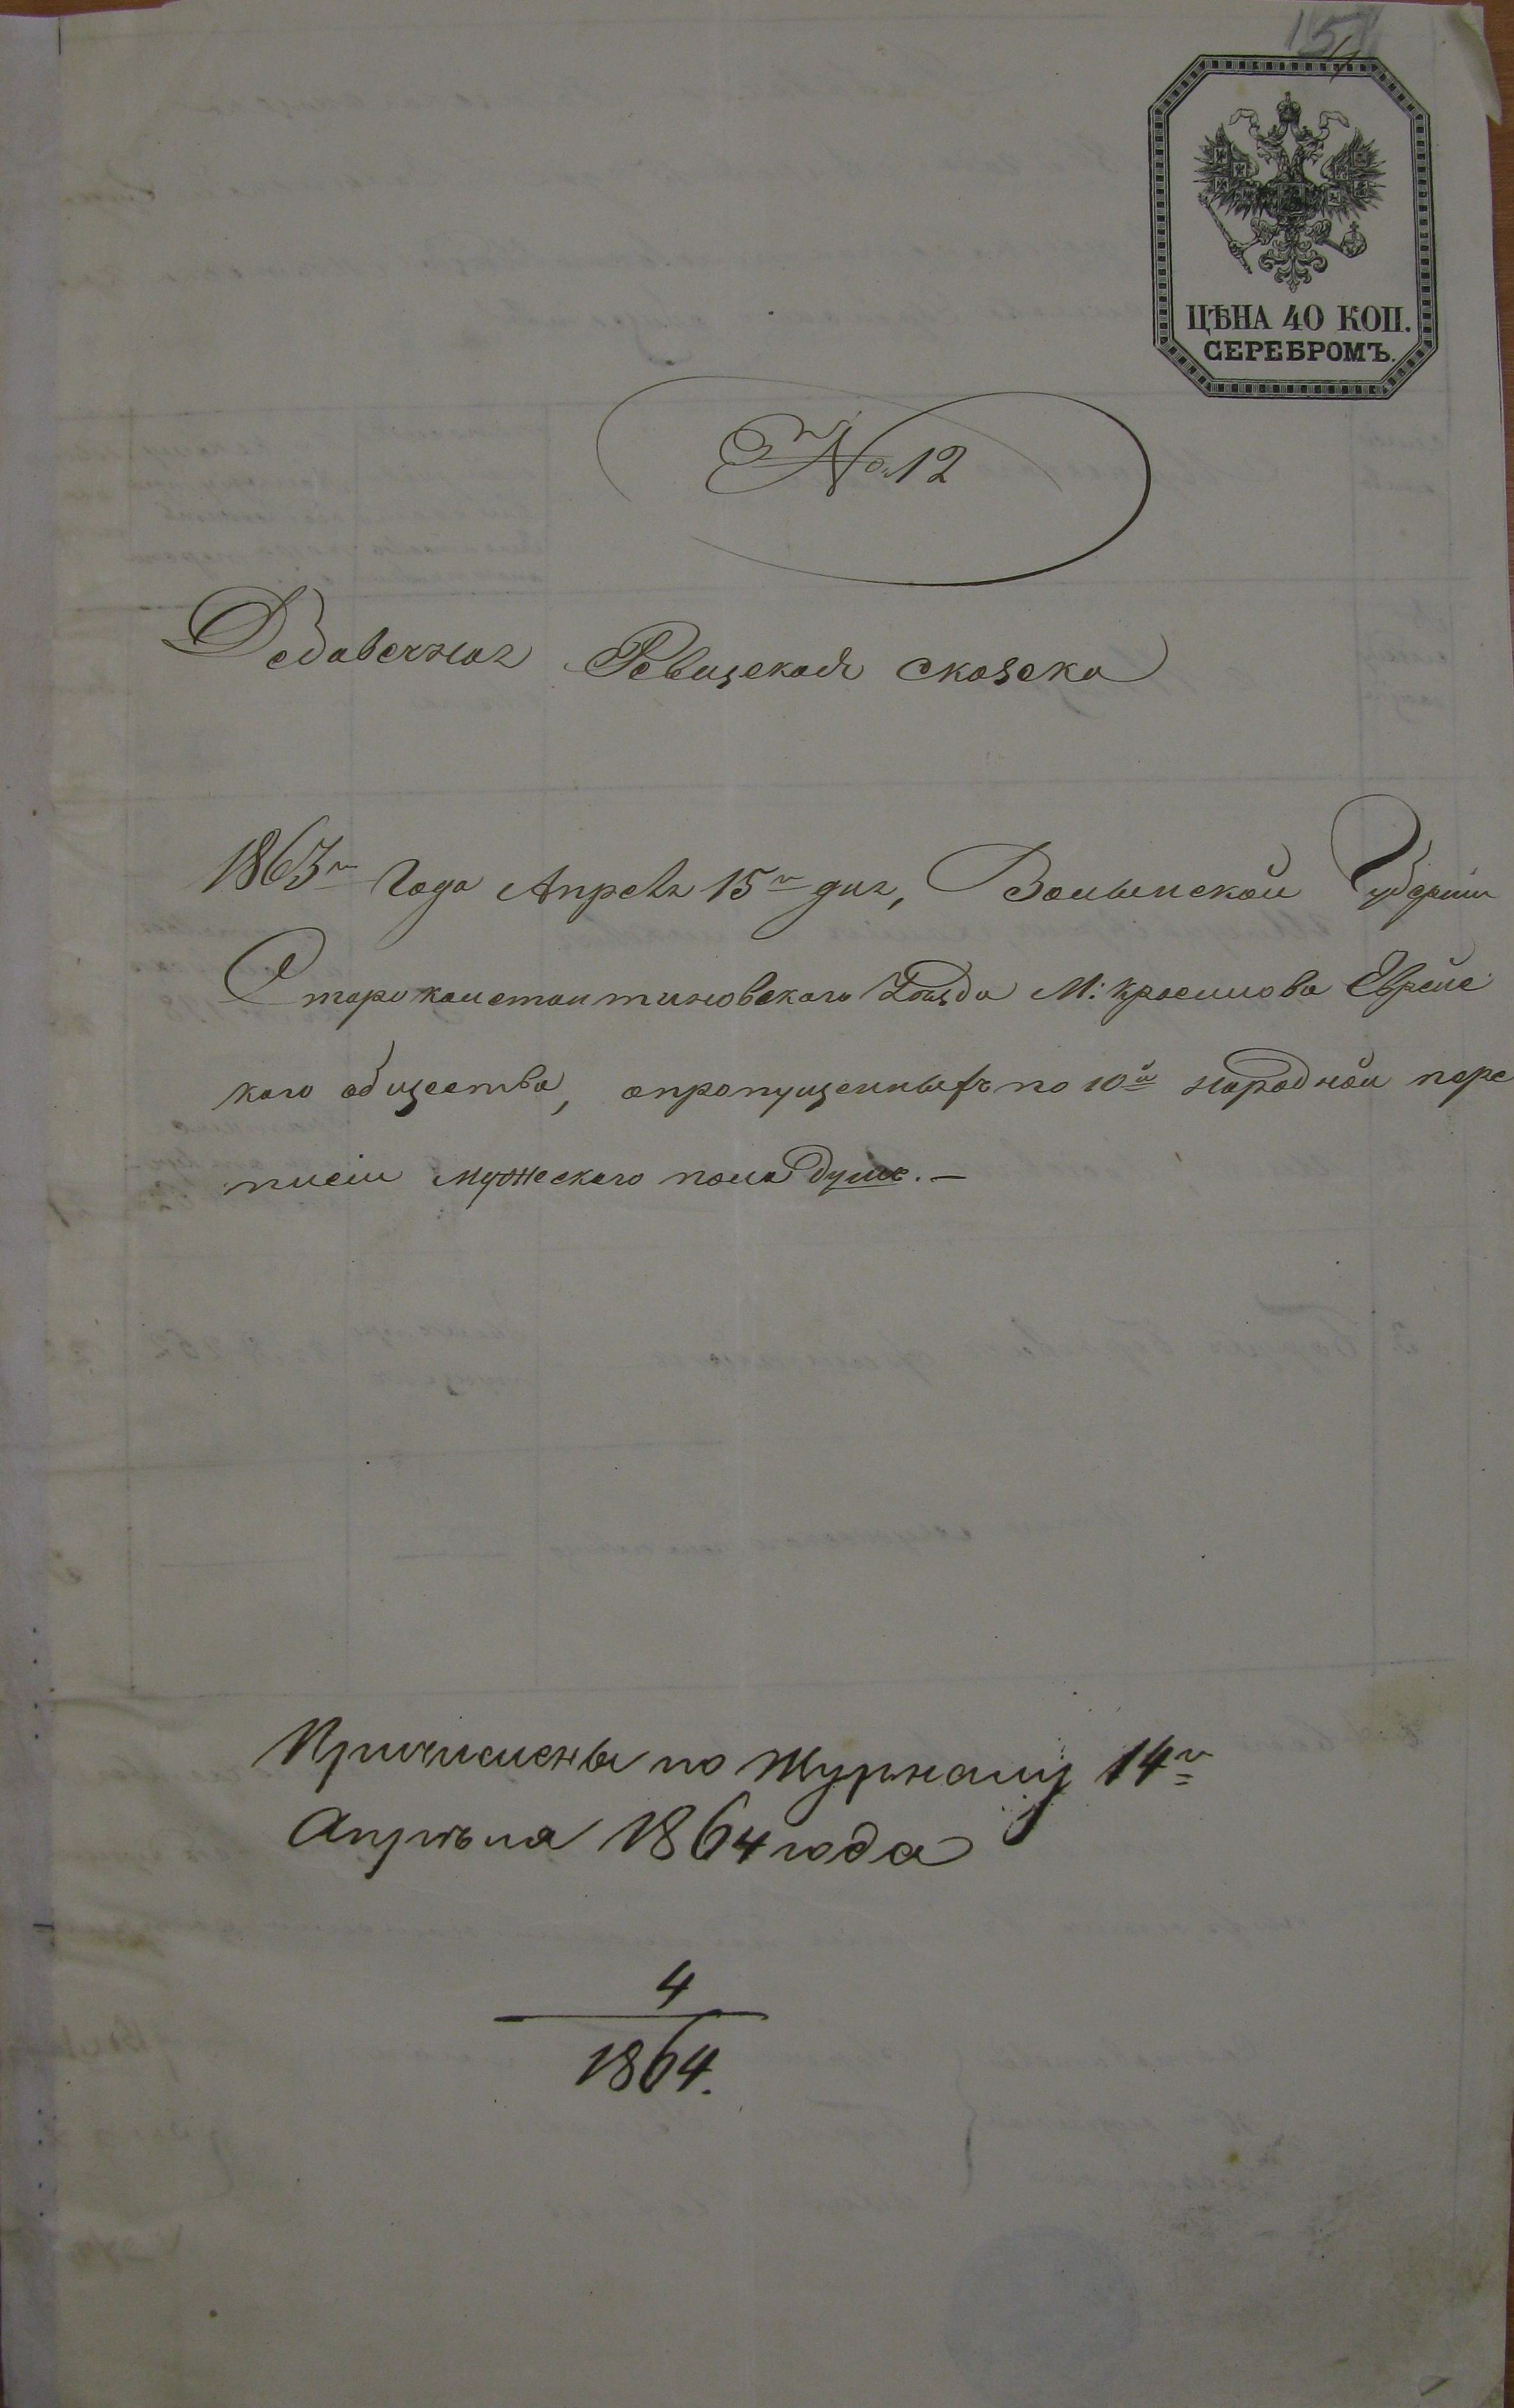 151
ЦѢНА 40 КОП.
СЕРЕБРОМЪ.
№ 12
Добавочная Ревизская сказка
1863го Года Апреля 15го дня, Волынской Губерніи
Старо константиновского Уѣзда М: Красилова Еврейс
кого общества, опропущенныхъ по 10й народной пере
писіи мужеского пола душе. —
Причислены по Журналу 14го
Апрѣля 1864 года
4
1864.